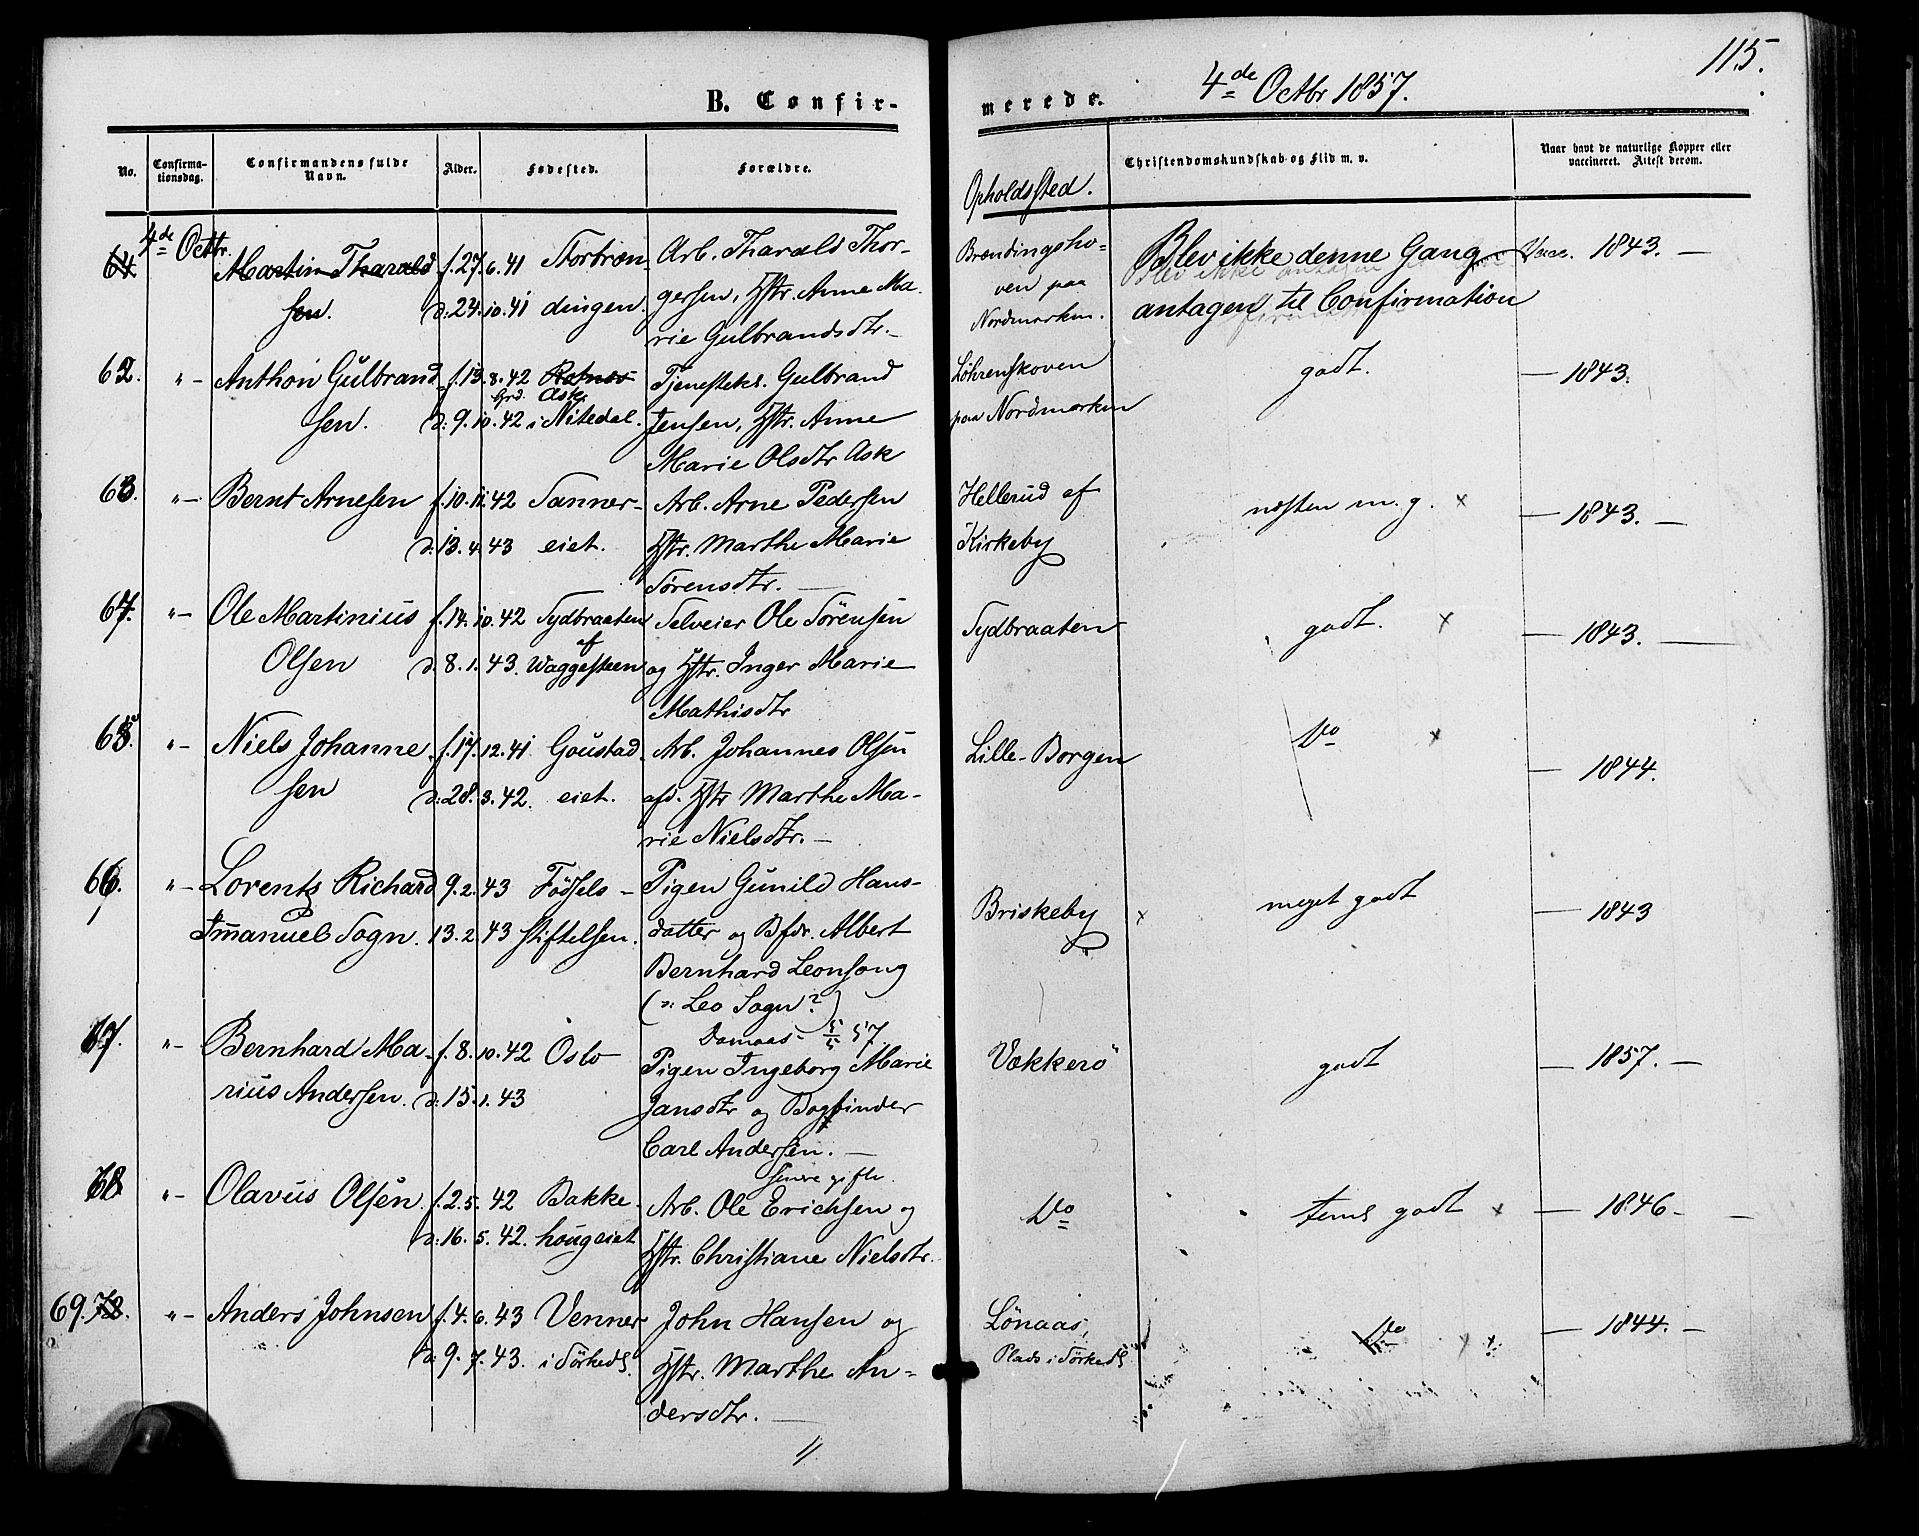 B. Confir-
merede.
4de Octbr 1857.
115.
No.
Confirma-
tionsdag.
Confirmandens fulde
Navn.
Alder.
Fødested.
Forældre.
Opholdssted.
Christendomskundskab og Flid m. v.
Naar havt de naturlige Kopper eller
vaccineret. Attest derom.
64 4de Octbr. Martin Tharald f. 27. 6. 41 Storbræn- Arb. Tharald Thor- Brændingsho- Blev ikke denne Gang Vacc. 1843. —
sen. d. 24. 10. 41 dingen. gersen, Hstr. Anne Ma- ven paa antagen til Confirmation
rie Gulbrandsdtr. — Nordmarken.
62. "- Anthon Gulbrand f. 13. 8. 42 Tjenestek. Gulbrand Løhrenskoven godt. — 1843.
Grd. Ask
sen. d. 9. 10. 42 i Nitedal. Jensen, Hstr. Anne paa Nordmarken
Marie Olsdtr Ask
63. "- Bernt Arnesen f. 10. 11. 42 Sanner- Arb. Arne Pedersen Hellerud af næsten m. g. x — 1843. —
d. 13. 4. 43 eiet. Hstr. Marthe Marie Kirkeby
Sørensdtr. —
64. "- Ole Martinius f. 14. 10. 42 Sydbraaten Selveier Ole Sörensen Sydbraaten godt. x — 1843. —
af
Olsen d. 8. 1. 43. Waggesteen og Hstr. Inger Marie
Mathisdtr
65. "- Niels Johanne f. 17. 12. 41 Goustad Arb. Johannes Olsen Lille-Borgen Do x — 1844.
sen d. 28. 3. 42. eiet. afd. Hstr Marthe Ma-
rie Nielsdtr. —
66. "- Lorentz Richard 9. 2. 43 Fødsels- Pigen Gunild Hans- Briskeby x meget godt — 1843
Imanuel Sogn. 13. 2. 43 stiftelsen. datter og Bfdr. Albert
Bernhard Leonsong
(ɔ: Leo Sogn?)
57.
67. "- Bernhard Ma- f. 8. 10. 42 Oslo Pigen Ingeborg Marie Vækkerö godt — 1857. —
rius Andersen. d. 15. 1. 43 Jansdtr og Bogbinder
Carl Andersen. —
senere gifte.
68 "- Olavus Olsen. f. 2. 5. 42 Bakke- Arb. Ole Erichsen og Do temd godt x — 1846 — —
d. 16. 5. 42. hougeiet Hstr. Christiane Nielsdtr.
69. 78. "- Anders Johnsen f. 4. 6. 43 Venner John Hansen og Lønaas, Do x — 1844. —
d. 9. 7. 43. i Sörkeds. Hstr. Marthe An- Plads i Sörkeds
dersdtr. —